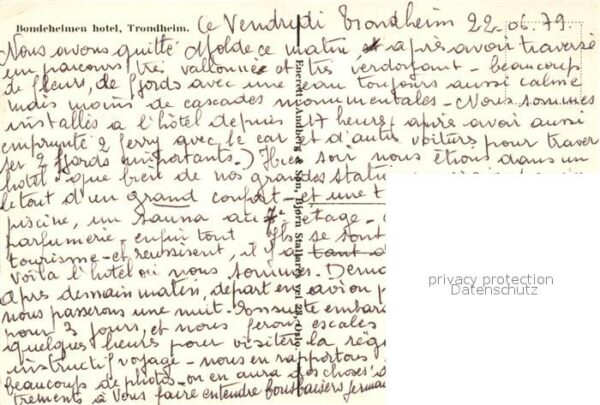 Bondeheimen hotel, Trondheim.
Ce Vendredi Trondheim 22.06.79.
Nous avons quitté Molde ce matin, et après avoir traversé
un parcours très vallonnée et très verdoyant - beaucoup
de fleurs, de fjords avec une eau toujours aussi calme
mais moins de cascades monumentales - Nous sommes
installés a l'hôtel depuis 17 heures (après avoir aussi
emprunté 2 ferry avec le car et d'autres voitures pour traver
ser 2 fjords importants.) Hier soir nous étions dans un
hôtel que bien de nos grandes stat
le tout d'un grand confort - et une t
piscine, un sauna au 7e étage -
parfumerie - enfin tout Ils se sont
tourisme - et réussissent, il y a tant d
Voilà l'hôtel où nous sommes. Dema
après demain matin, départ en avion p
nous passerons une nuit. Ensuite embar
pour 3 jours, et nous ferons escales
quelques heures pour visiter la rég
instructif voyage - nous en rapportons
beaucoup de photos - on en aura des choses à
trements à vous faire entendre Bons baisers
Eneret: Lundberg & Søn, Bjørn Stallares vei 28, Oslo
privacy protection
Datenschutz